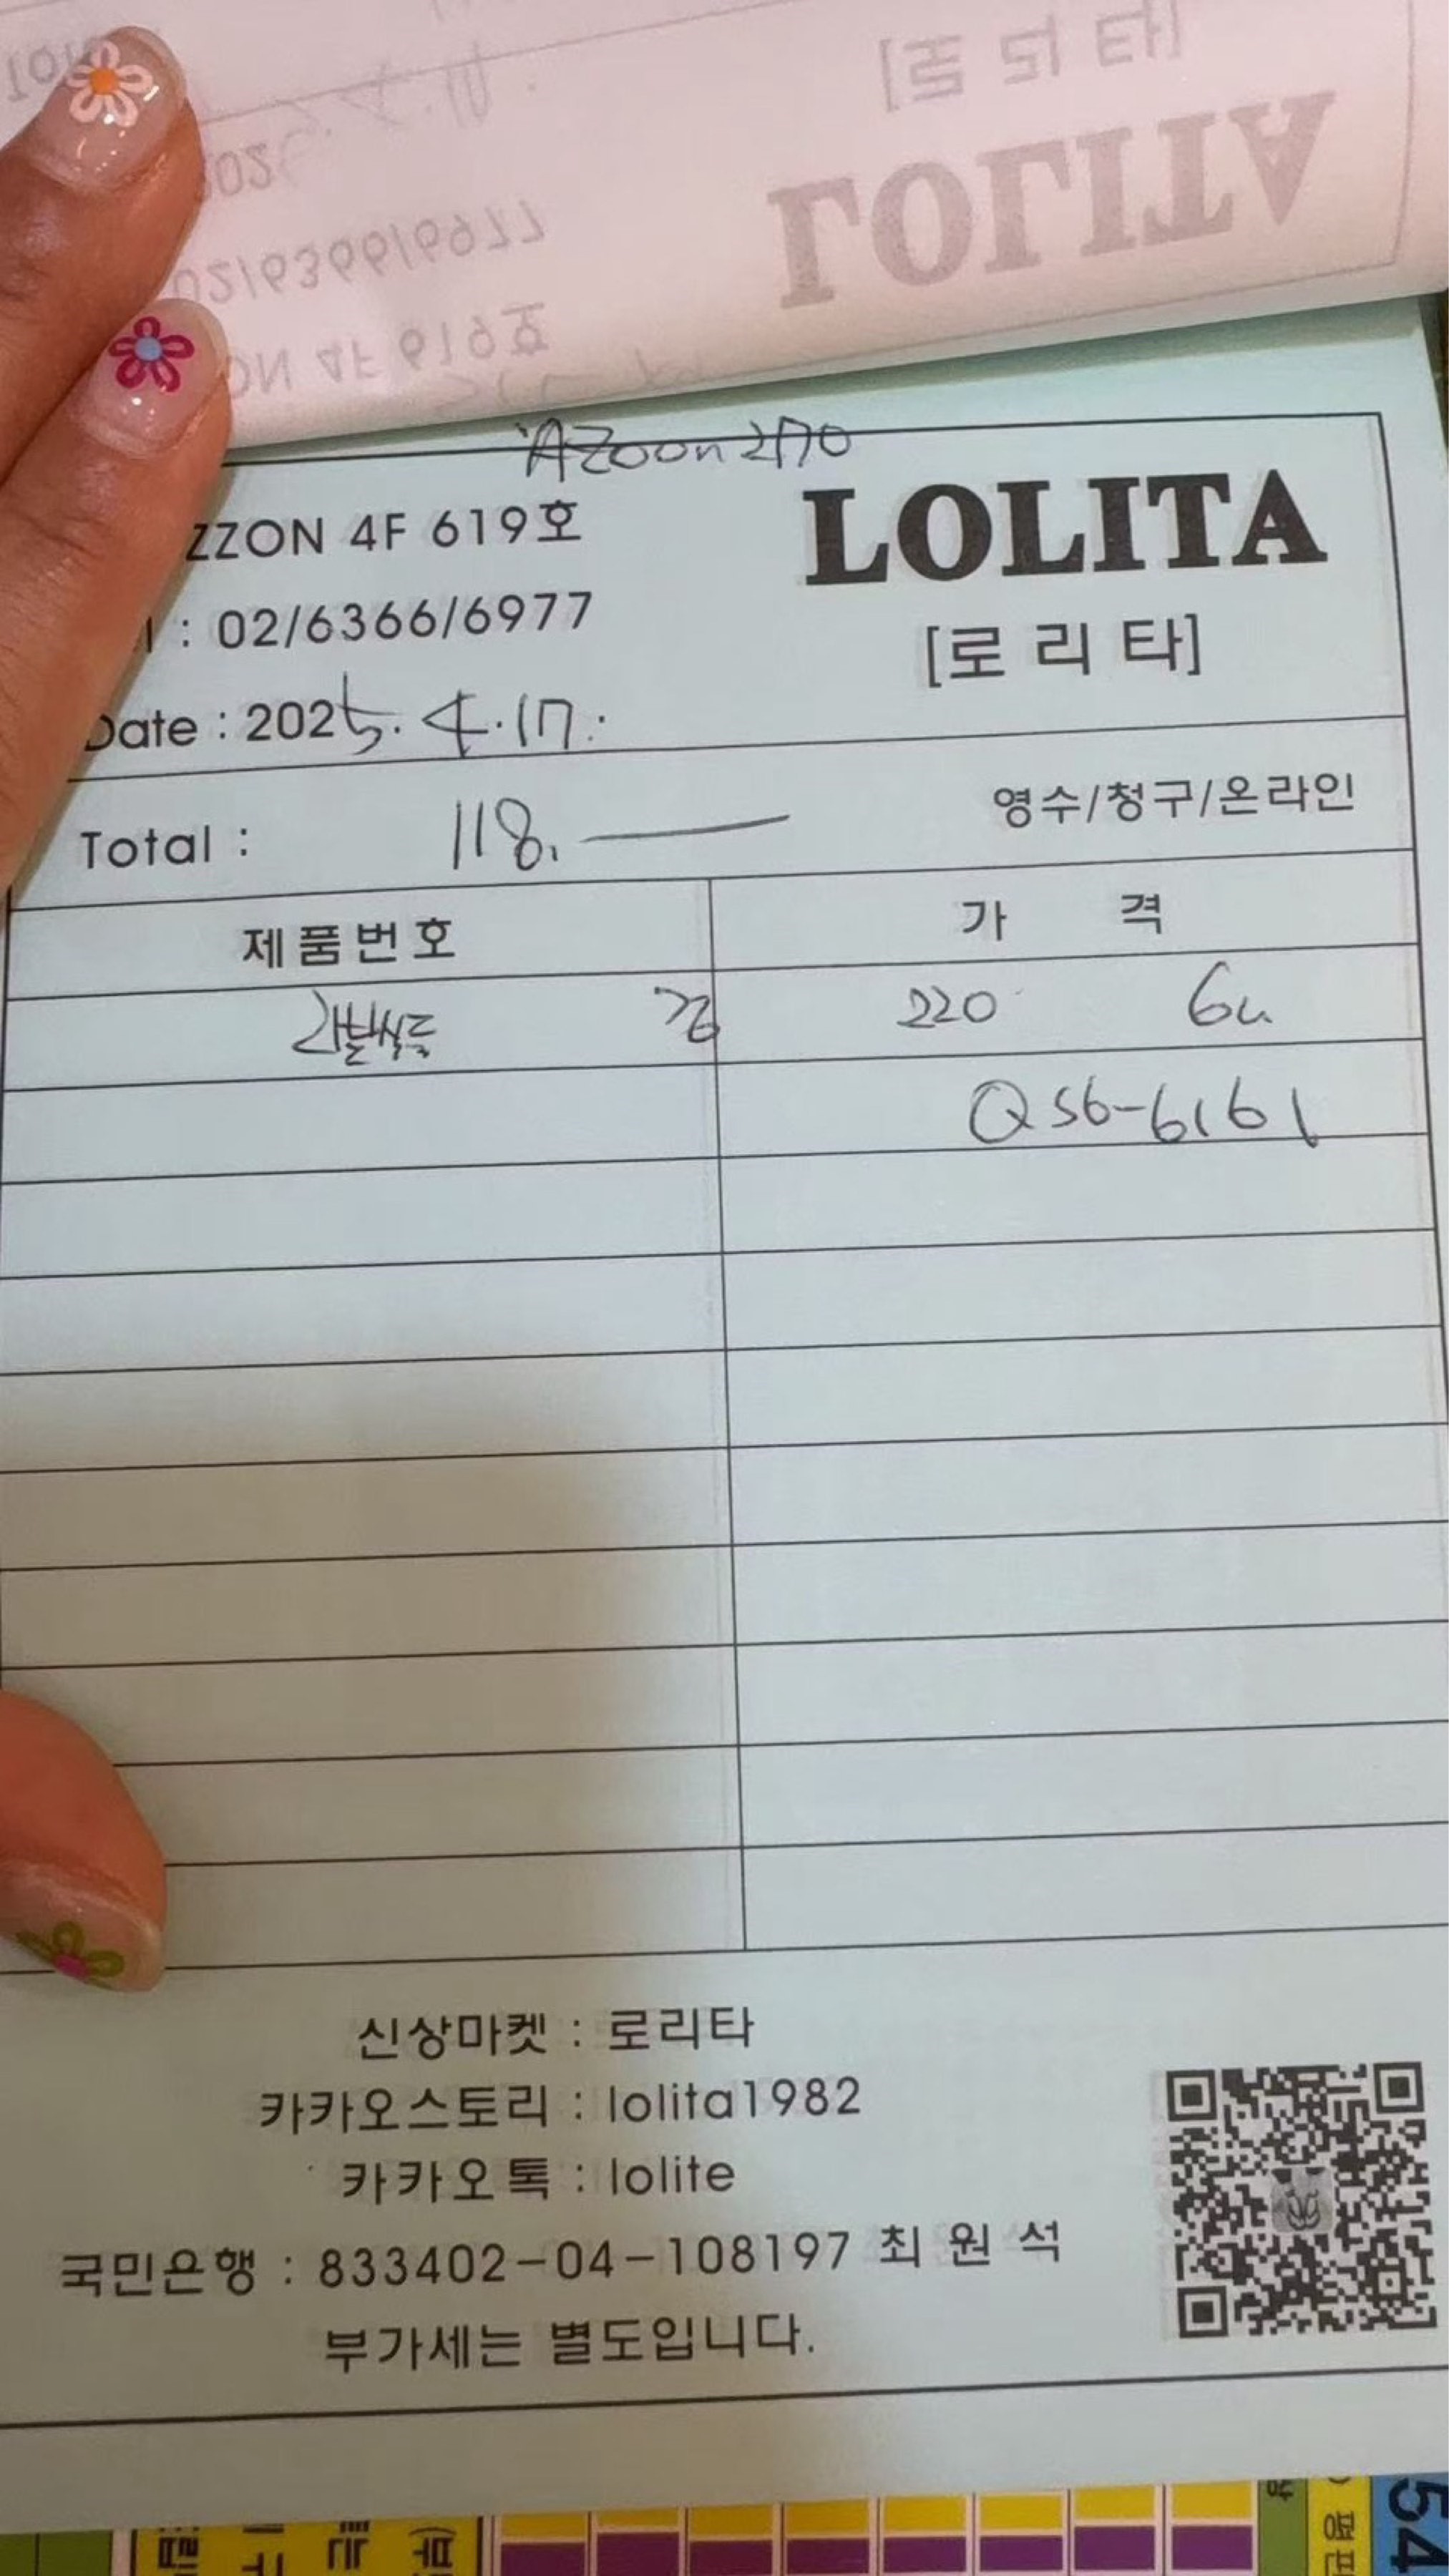 LOLITA
[로리타]
ZZON 4F 619호
: 02/6366/6977
Date : 2025. 4. 17.
Total : 118,
영수/청구/온라인
제품번호 가 격
220 6
QS6-6161
신상마켓 : 로리타
카카오스토리 : lolita1982
카카오톡 : lolite
국민은행 : 833402-04-108197 최 원 석
부가세는 별도입니다.
54